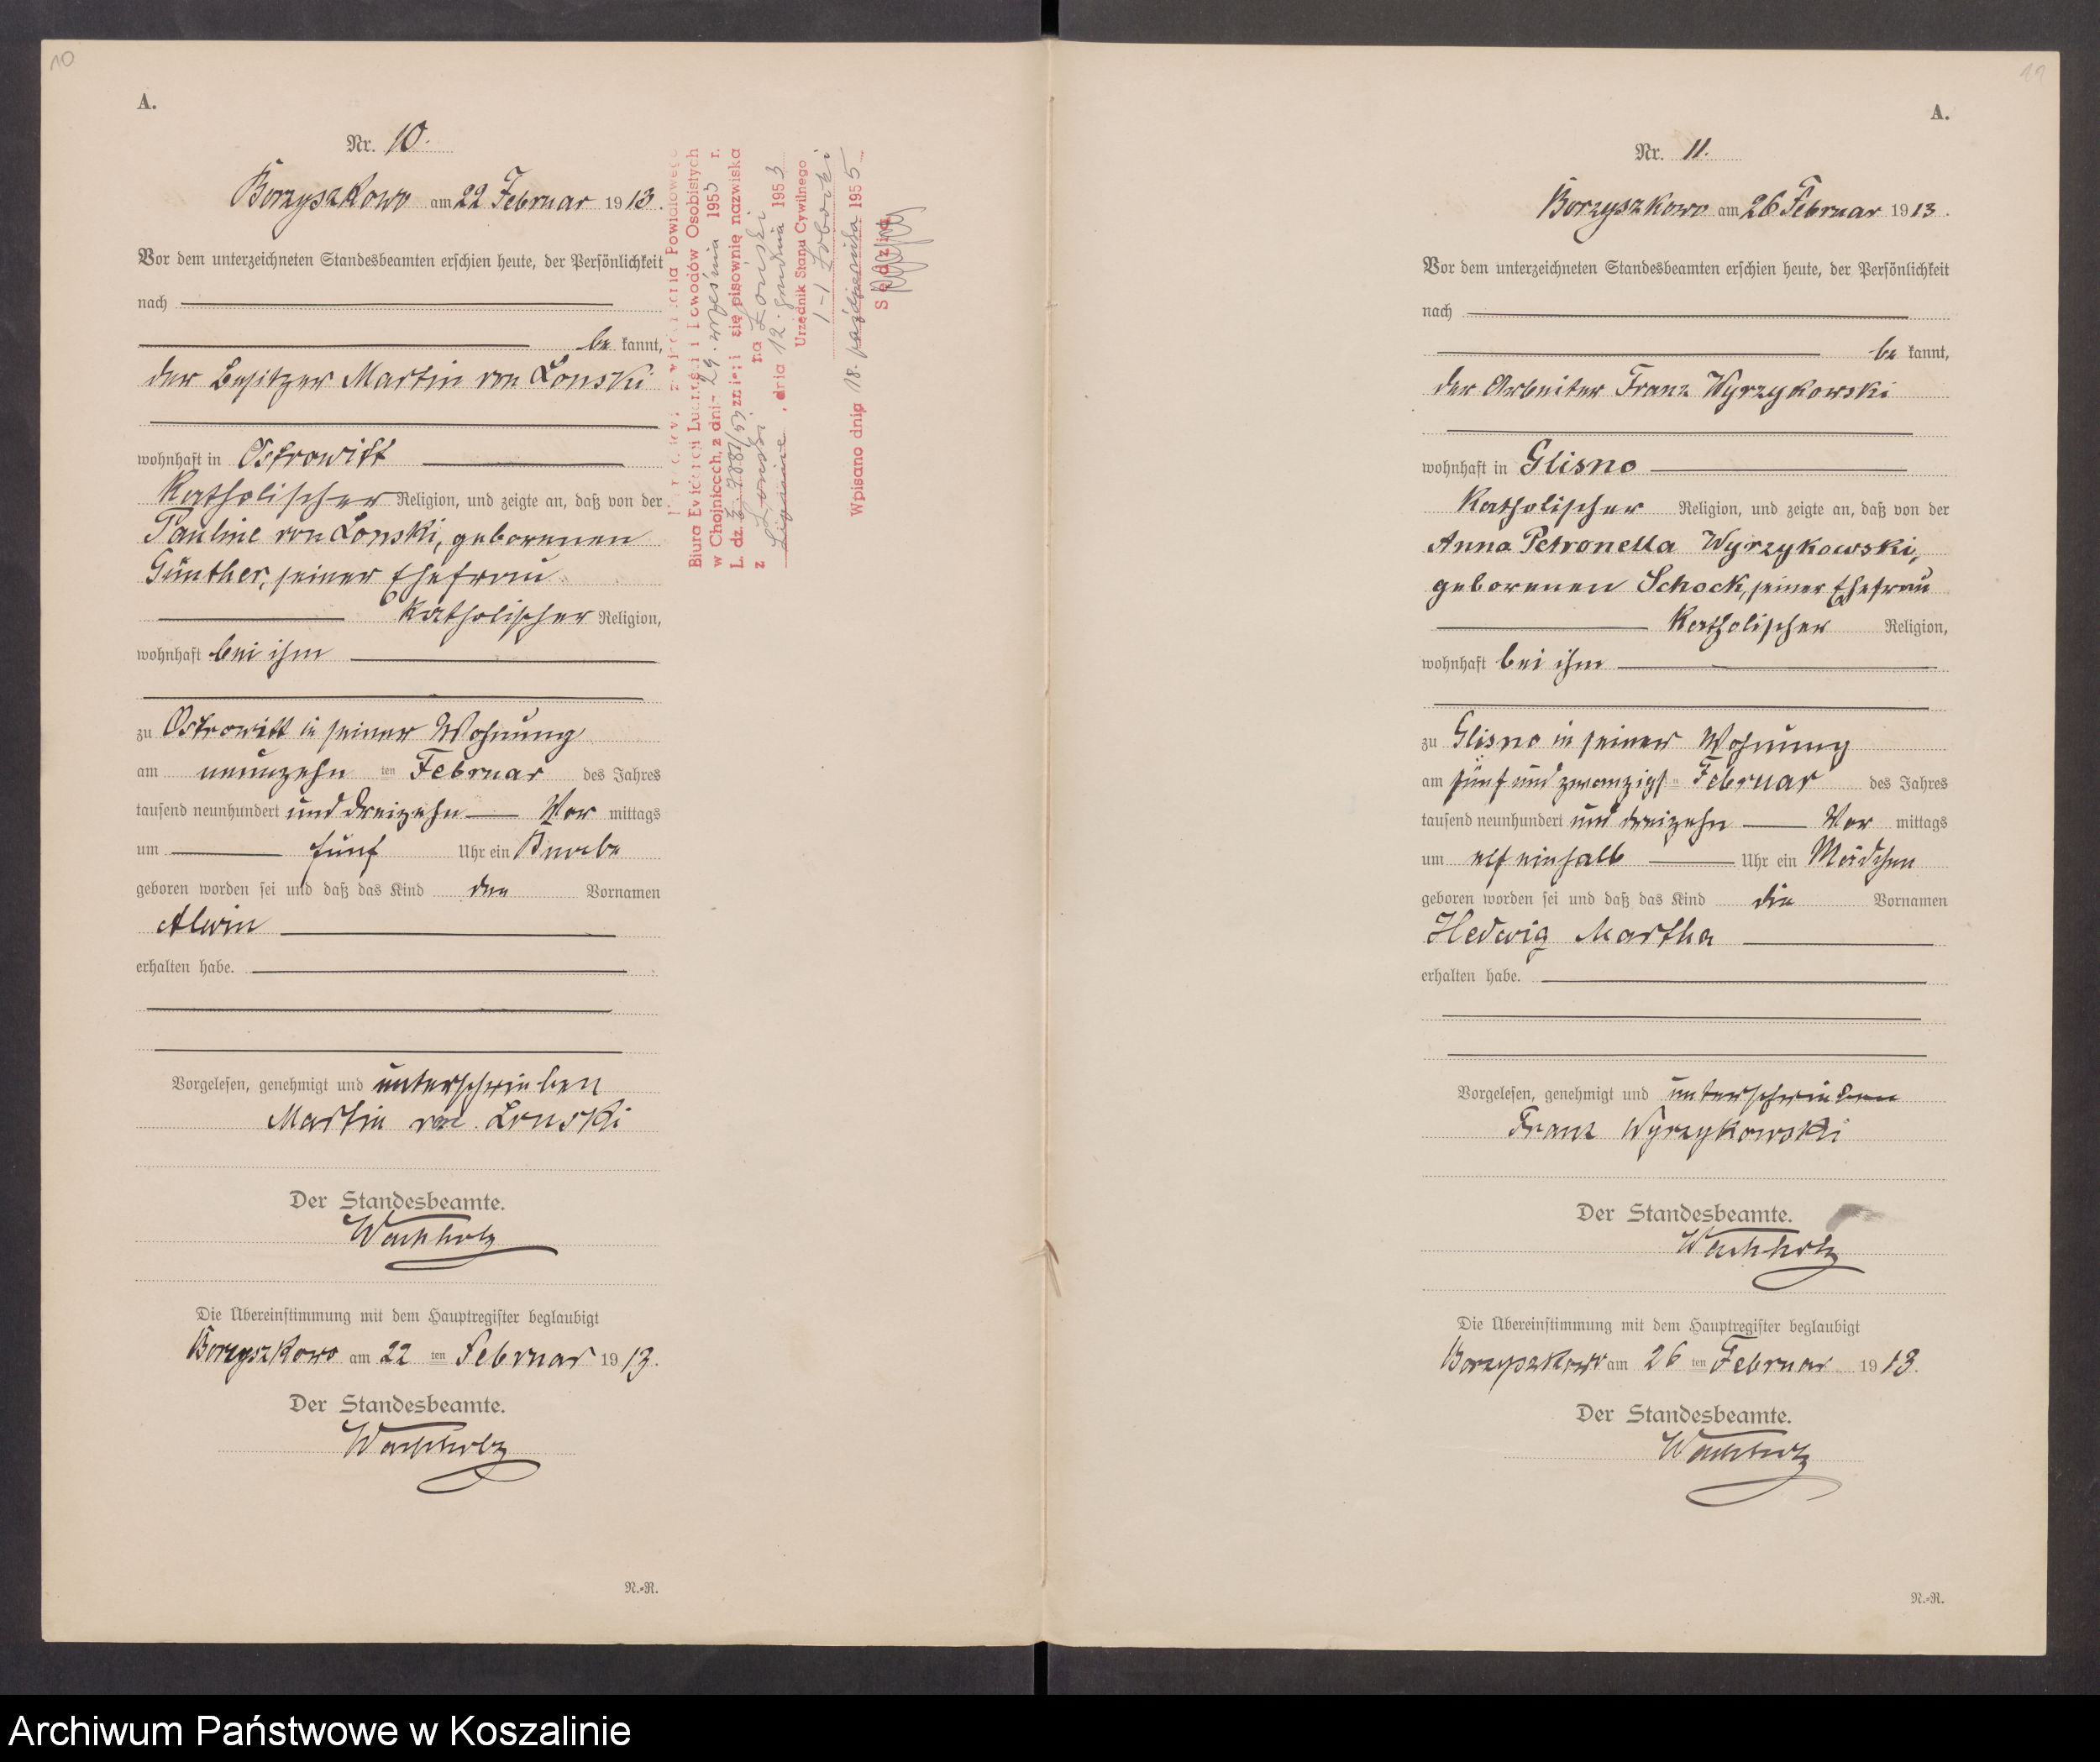 10
A.
Nr. 10.
Borzyszkowo am 22 Februar 1913.
Vor dem unterzeichneten Standesbeamten erschien heute, der Persönlichkeit
nach
be kannt,
der Besitzer Martin von Lonski
wohnhaft in Ostrowitt
katholischer Religion, und zeigte an, daß von der
Pauline von Lonski, geborenen
Günther, seiner Ehefrau
katholischer Religion,
wohnhaft bei ihm
zu Ostrowitt in seiner Wohnung
am neunzehn ten Februar des Jahres
tausend neunhundert und dreizehn Vor mittags
um fünf Uhr ein Knabe
geboren worden sei und daß das Kind den Vornamen
Alwin
erhalten habe.
Vorgelesen, genehmigt und unterschrieben
Martin von Lonski
Der Standesbeamte.
Wachholz
Die Übereinstimmung mit dem Hauptregister beglaubigt
Borzyszkowo am 22 ten Februar 1913.
Der Standesbeamte.
Wachholz
N.-R.
Powiatowego
Biura Ewidencji Ludności i Dowodów Osobistych
w Chojnicach, z dnia 29. września 1953 r.
L. dz. się pisownię nazwiska
z Lonski na Łoński
Lipnica, dnia 12. grudnia 1953
Urzędnik Stanu Cywilnego
Wpisano dnia 18. października 1955
Sędzia
11
A.
Nr. 11.
Borzyszkowo am 26 Februar 1913.
Vor dem unterzeichneten Standesbeamten erschien heute, der Persönlichkeit
nach
be kannt,
der Arbeiter Franz Wyrzykowski
wohnhaft in Glisno
katholischer Religion, und zeigte an, daß von der
Anna Petronella Wyrzykowski,
geborenen Schock, seiner Ehefrau
katholischer Religion,
wohnhaft bei ihm
zu Glisno in seiner Wohnung
am fünf und zwanzigs ten Februar des Jahres
tausend neunhundert und dreizehn Vor mittags
um elf einhalb Uhr ein Mädchen
geboren worden sei und daß das Kind die Vornamen
Hedwig Martha
erhalten habe.
Vorgelesen, genehmigt und unterschrieben
Franz Wyrzykowski
Der Standesbeamte.
Wachholz
Die Übereinstimmung mit dem Hauptregister beglaubigt
Borzyszkowo am 26 ten Februar 1913.
Der Standesbeamte.
Wachholz
N.-R.
Archiwum Państwowe w Koszalinie